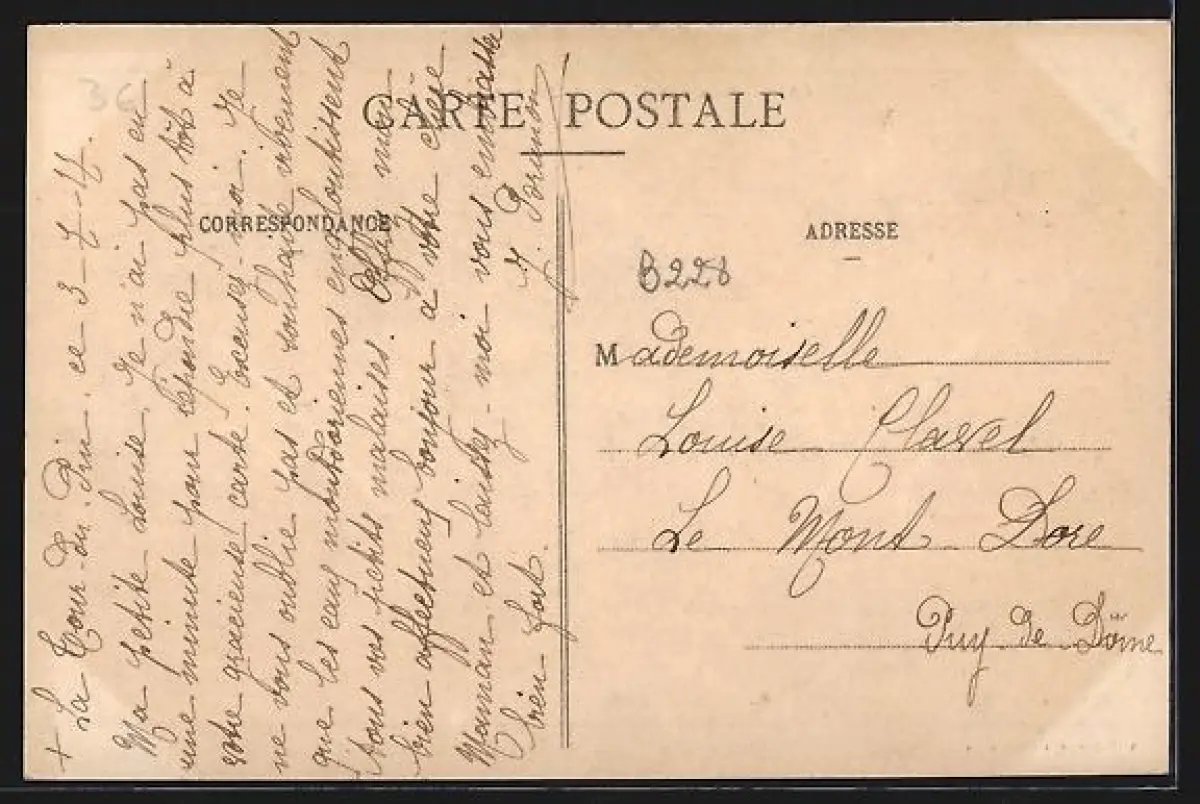 36
CARTE POSTALE
CORRESPONDANCE
ADRESSE
+ La Tour-du-Pin. ce 3-7-
Ma petite Louise. Je n'ai pas eu
une minute pour répondre plus tôt à
votre gracieuse carte. Excusez-moi. Je
ne vous oublie pas et souhaite vivement
que les eaux montdoriennes engloutissent
tous vos petits malaises. Offrez mon
bien affectueux bonjour à votre chère
Maman et laissez-moi vous embrasser
bien fort.
J.
B228
Mademoiselle
Louise Clavel
Le Mont Dore
Puy de Dôme